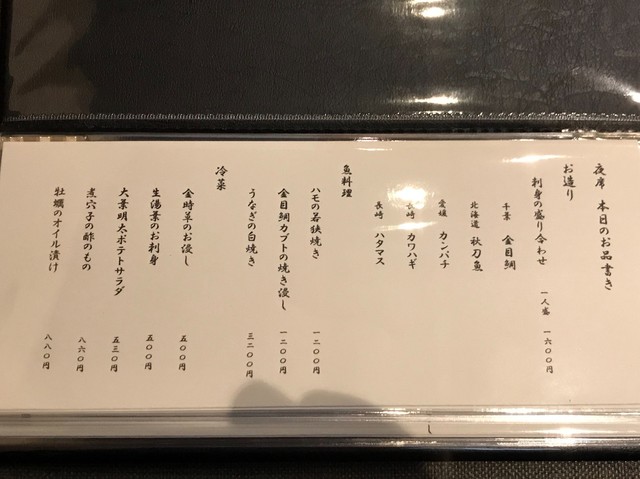 夜席 本日のお品書き
お造り
刺身の盛り合わせ 一人盛 一六〇〇円
千葉 金目鯛
北海道 秋刀魚
愛媛 カンパチ
長崎 カワハギ
長崎 ハタマス
魚料理
ハモの若狭焼き 一二〇〇円
金目鯛カブトの焼き浸し 一二〇〇円
うなぎの白焼き 三二〇〇円
冷菜
金時草のお浸し 五〇〇円
生湯葉のお刺身 五〇〇円
大葉明太ポテトサラダ 五三〇円
煮穴子の酢のもの 八六〇円
牡蠣のオイル漬け 八八〇円